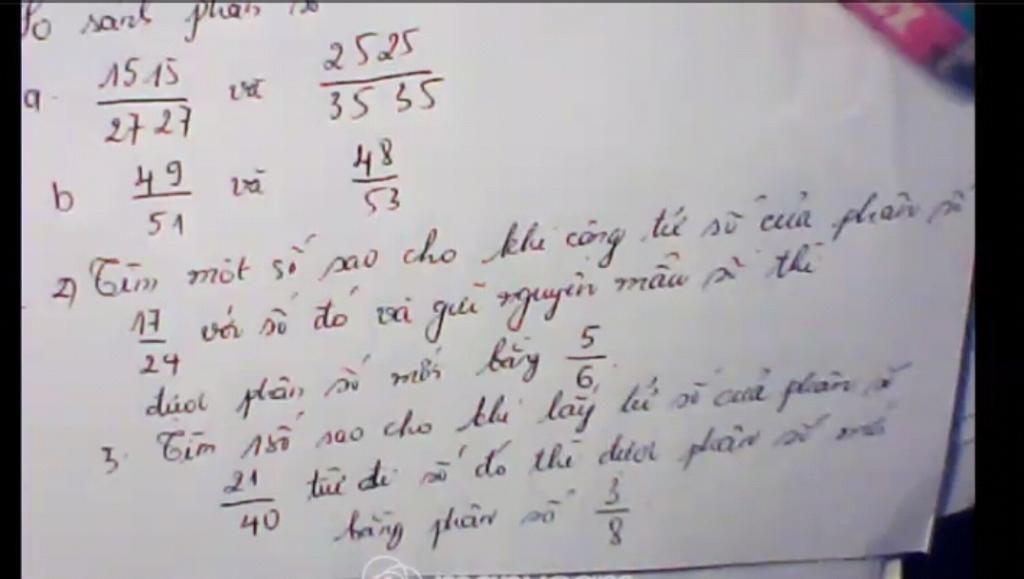 So sánh phân số
a. 1515/2727 và 2525/3535
b 49/51 và 48/53
2) Tìm một số sao cho khi cộng tử số của phân số
17/24 với số đó và giữ nguyên mẫu số thì
được phân số mới bằng 5/6.
3. Tìm 1 số sao cho khi lấy tử số của phân số
21/40 trừ đi số đó thì được phân số mới
bằng phân số 3/8